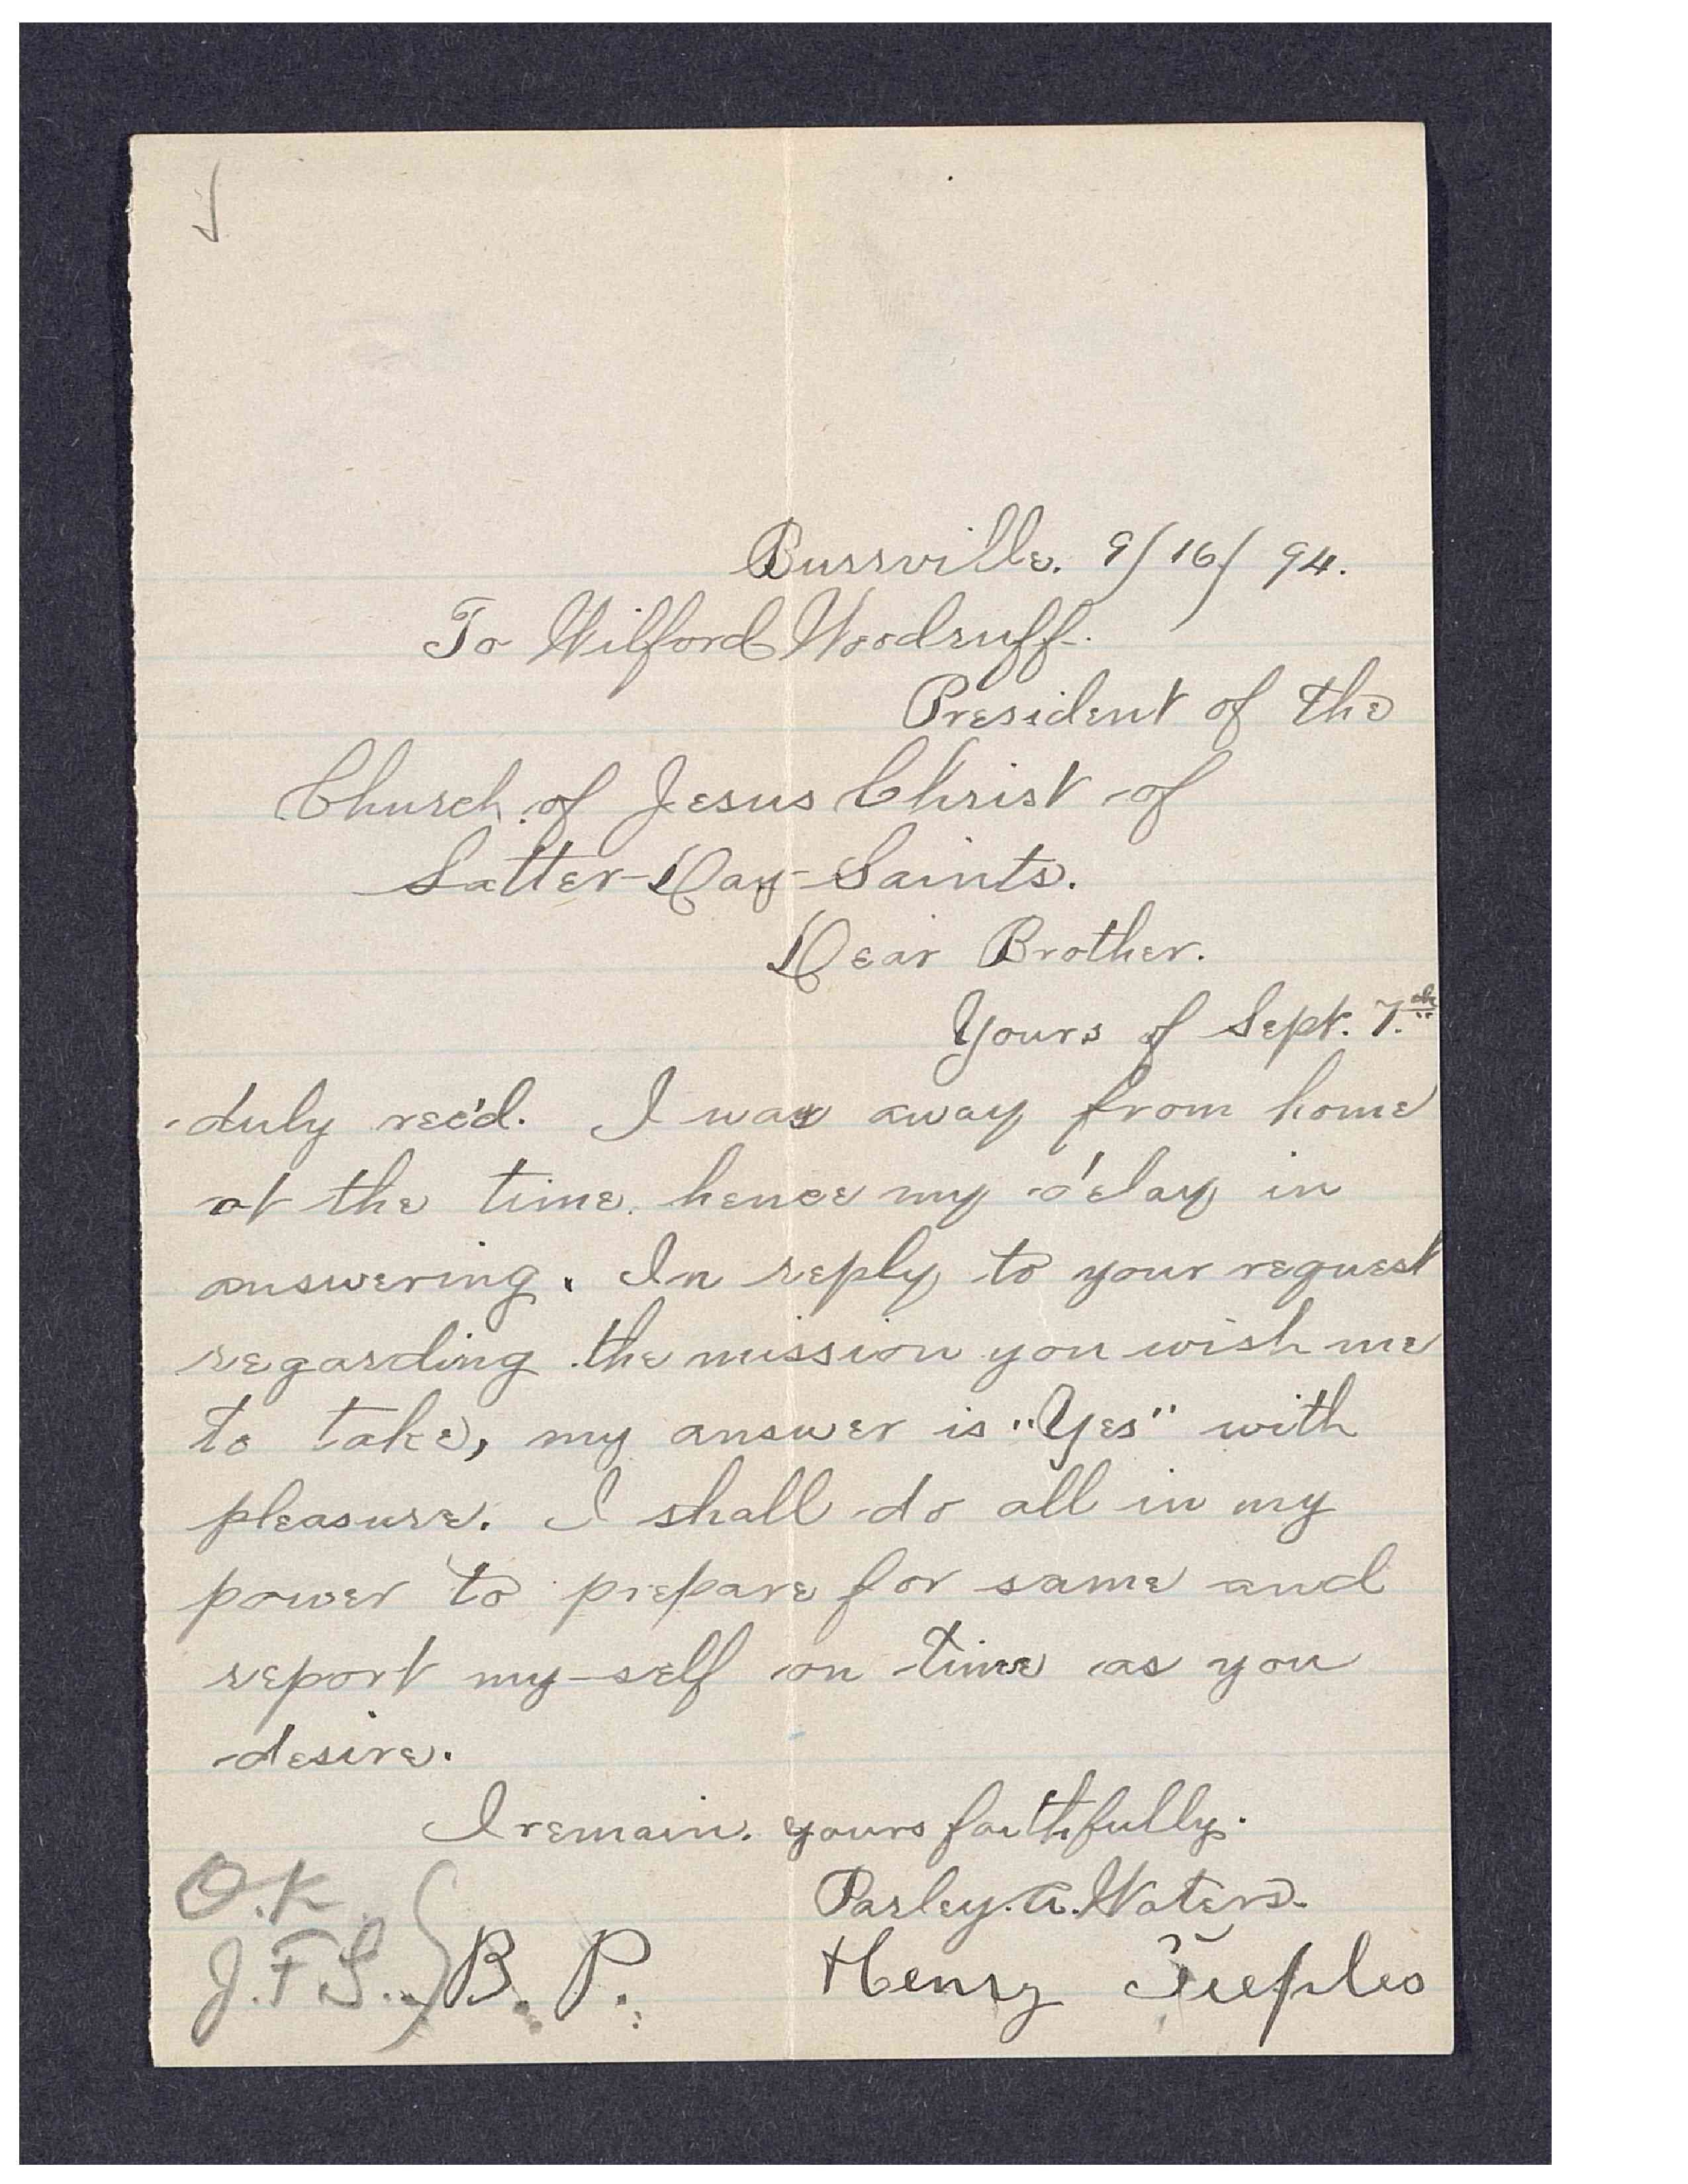 Burrville. 9/16/94.
To Wilford Woodruff.
President of the
Church of Jesus Christ of
Latter-Day-Saints.
Dear Brother.
Yours of Sept. 7.th
duly rec'd. I was away from home
at the time. hence my delay in
answering. In reply to your request
regarding the mission you wish me
to take, my answer is "Yes" with
pleasure. I shall do all in my
power to prepare for same and
report my-self on time as you
desire.
I remain. yours faithfully.
Parley. A. Waters.
Henry Teeples
B. P.
O.K.
J.F.S.